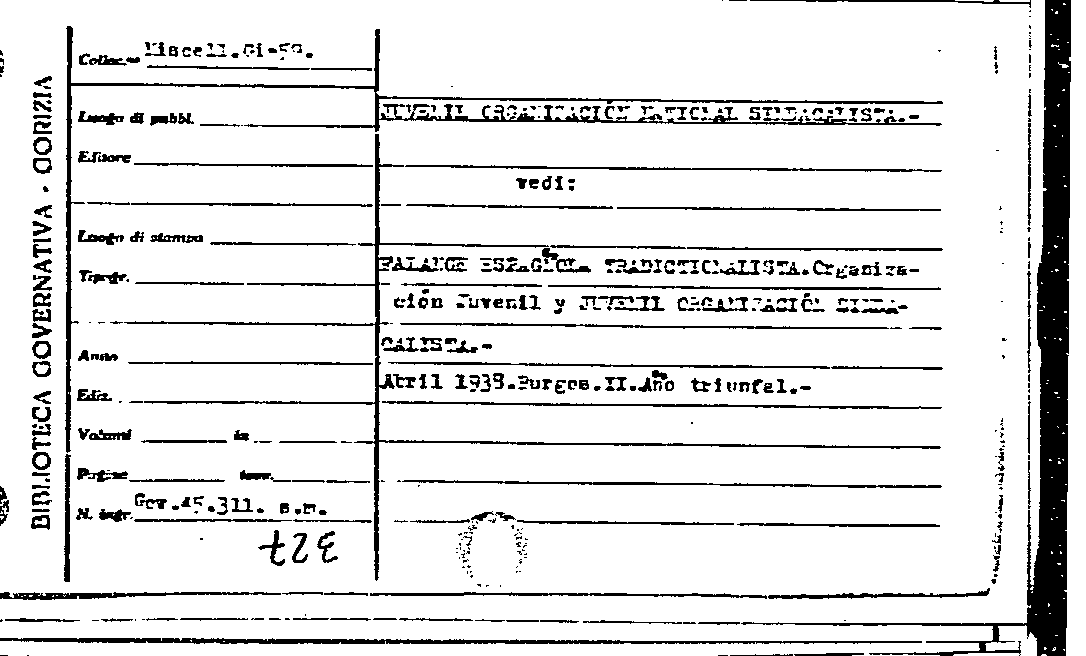 BIBLIOTECA GOVERNATIVA - GORIZIA
Colloc.ne Miscell.Gi-59.
Luogo di pubbl.
Editore
Luogo di stampa
Tipogr.
Anno
Ediz.
Volumi in
Pagine tavv.
N. ingr. Gov.45.311. s.m.
327
JUVENIL ORGANIZACIÓN NATIONAL SINDACALISTA.-
vedi:
FALANGE ESPAGÑOLA TRADICTIONALISTA.Organiza-
ción Juvenil y JUVENIL ORGANIZACIÓN SINDA-
CALISTA.-
Abril 1938.Burgos.II.Año triunfal.-